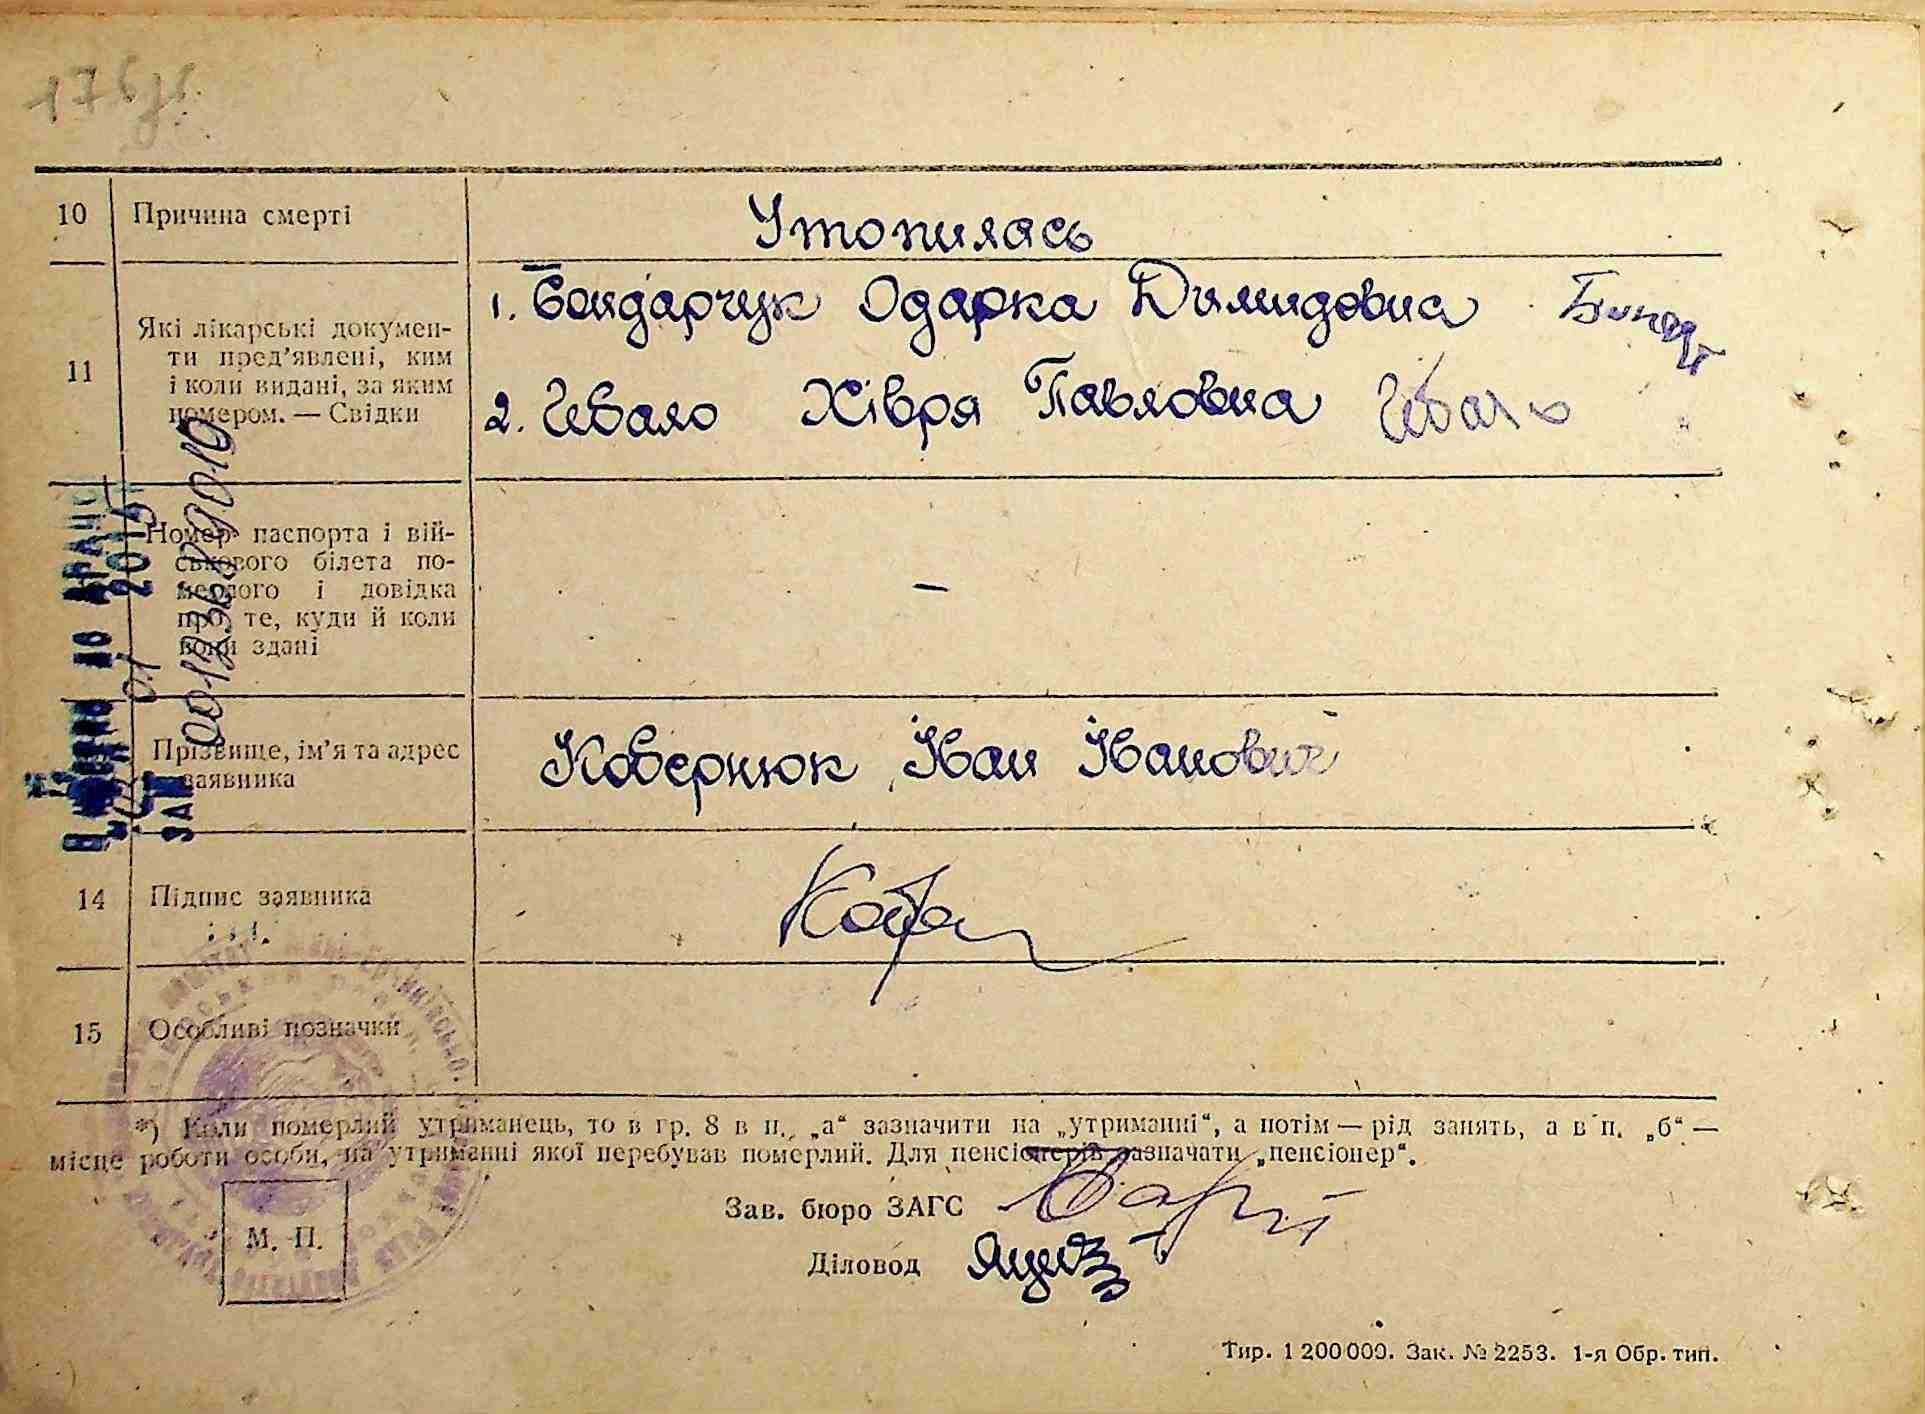 10 Причина смерті Утопилась
11 Які лікарські докумен-
ти пред'явлені, ким
і коли видані, за яким
номером. — Свідки
1. Бондарчук Одарка Дімидовна
2. Чебало Хівря Павловна Чебало
Номер паспорта і вій-
ськового білета по-
мерлого і довідка
про те, куди й коли
вони здані
—
Прізвище, ім'я та адрес
заявника
Ковернюк Іван Іванович
14 Підпис заявника
15 Особливі позначки
*) Коли померлий утриманець, то в гр. 8 в п. „а“ зазначити на „утриманні“, а потім — рід занять, а в п. „б“ —
місце роботи особи, на утриманні якої перебував померлий. Для пенсіонерів зазначати „пенсіонер“.
Зав. бюро ЗАГС
М. П.
Діловод
Тир. 1 200 000. Зак. № 2253. 1-я Обр. тип.